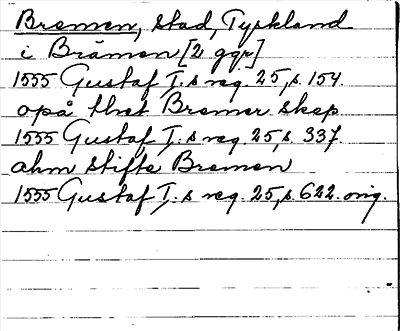 Bremen, stad, Tyskland
i Brämen [2 ggr]
1555 Gustaf I.s reg. 25, s. 154.
opå thet Bremer skep
1555 Gustaf I.s reg. 25, s. 337.
ahm stifte Bremen
1555 Gustaf I.s reg. 25, s. 622. orig.